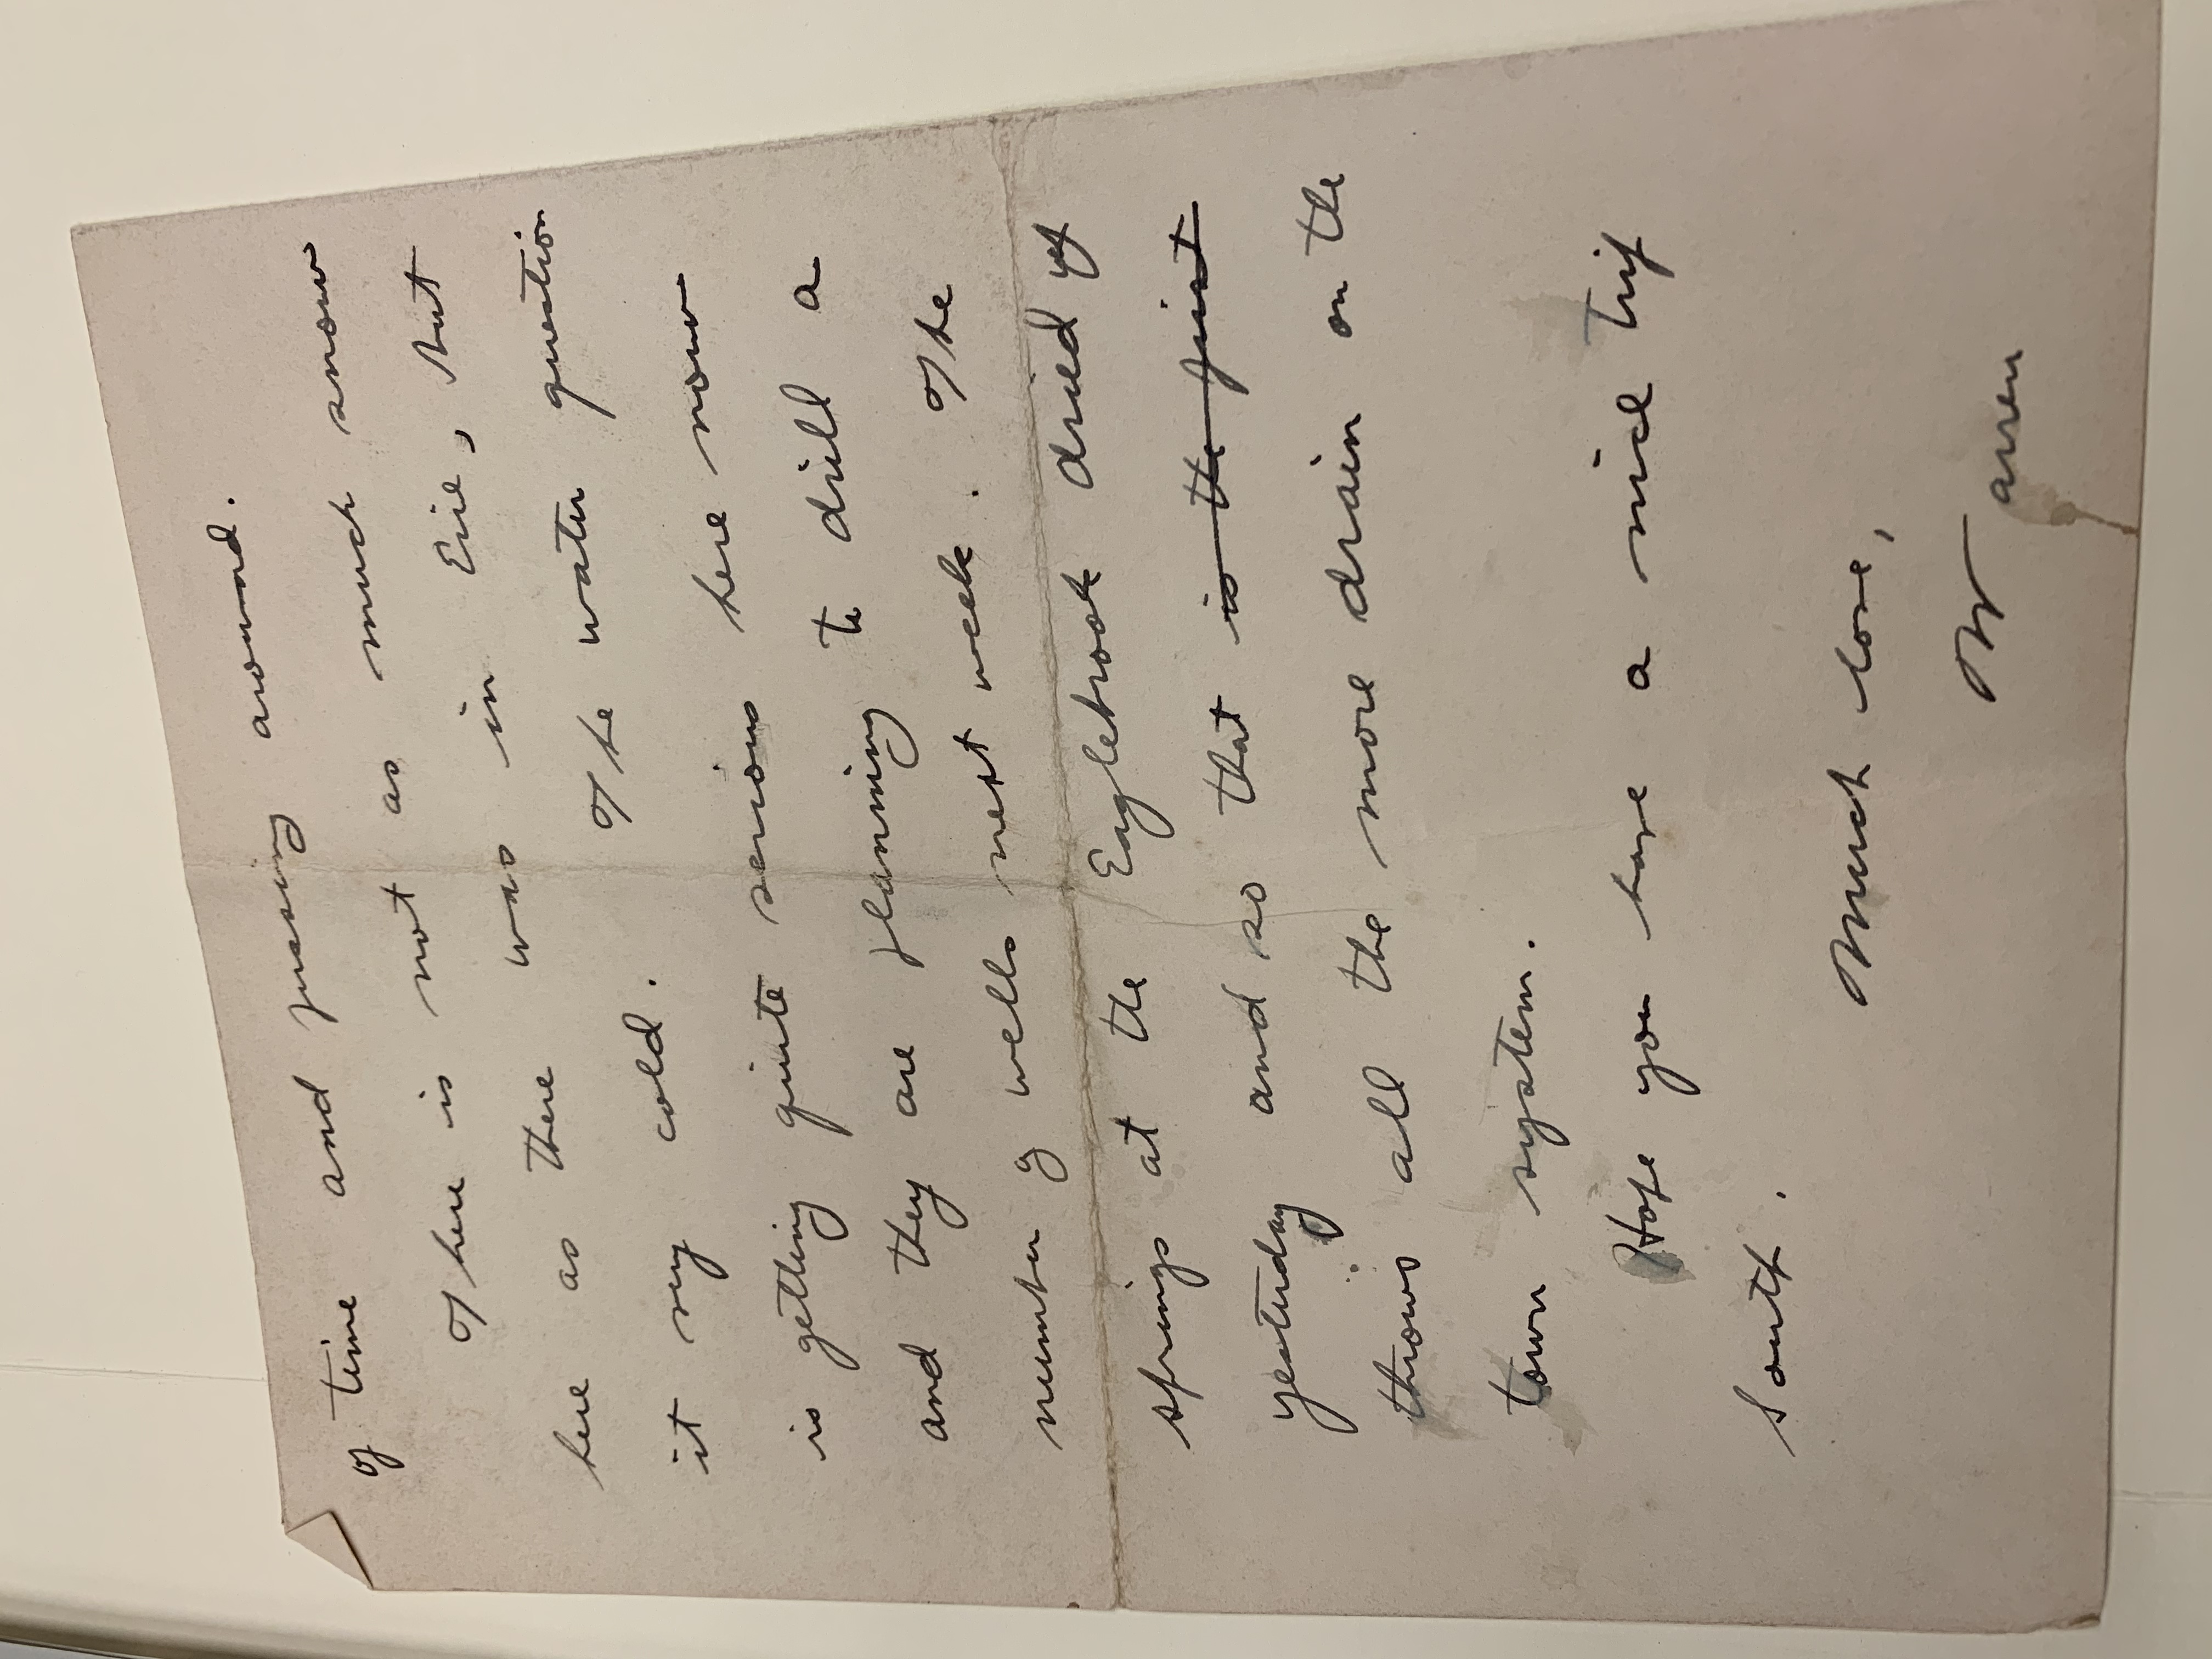 of time and fussing around.
There is not as much snow
here as there was in Erie, but
it very cold. The water question
is getting quite serious here now
and they are planning to drill a
number of wells next week. The
springs at the Eaglebrook dried up
yesterday and so that is the first
throws all the more drain on the
town system.
Hope you have a nice trip
South.
Much love,
Warren